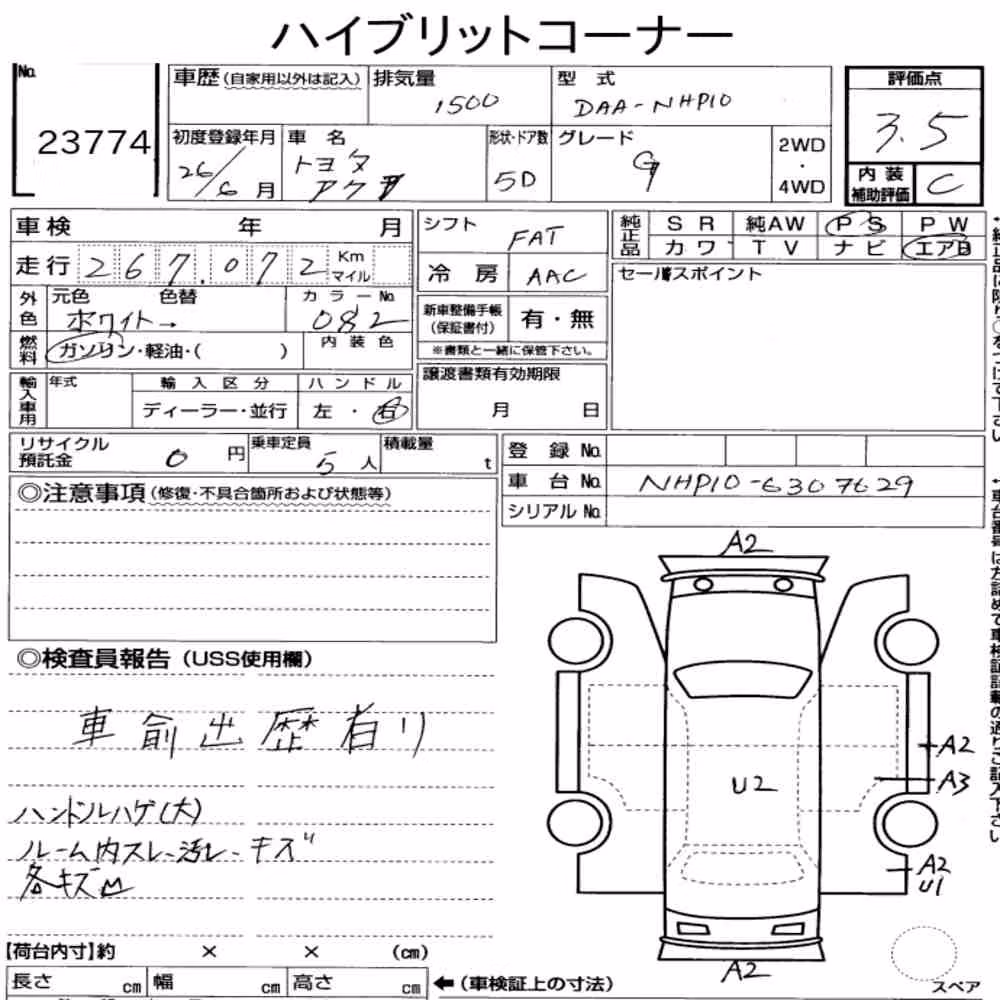 ハイブリットコーナー
No. 23774
車歴(自家用以外は記入) 排気量 1500 型式 DAA-NHP10 評価点 3.5
初度登録年月 26/6月 車名 トヨタ アクア 形状・ドア数 5D グレード G 2WD・4WD 内装補助評価 C
車検 年 月 シフト FAT 純正品 SR 純AW PS PW
走行 267,072 Km マイル 冷房 AAC カワ TV ナビ エアB
外色 元色 ホワイト→ 色替 カラーNo. 082 新車整備手帳(保証書付) 有・無 セールスポイント
燃料 ガソリン・軽油・( ) 内装色 ※書類と一緒に保管下さい。
輸入車用 年式 輸入区分 ハンドル 譲渡書類有効期限
ディーラー・並行 左・右 月 日
リサイクル預託金 0円 乗車定員 5人 積載量 t 登録No.
車台No. NHP10-6307629
シリアルNo.
◎注意事項(修復・不具合箇所および状態等)
A2
◎検査員報告(USS使用欄)
車輸出歴有り
A2
U2 A3
ハンドルハゲ(大)
ルーム内スレ-汚レ-キズ
各キズ凹
A2
U1
A2
【荷台内寸】約 × × (cm)
長さ cm 幅 cm 高さ cm ←(車検証上の寸法)
スペア